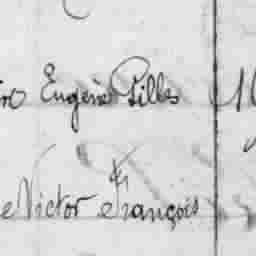 Eugène Gilles
e Victor François